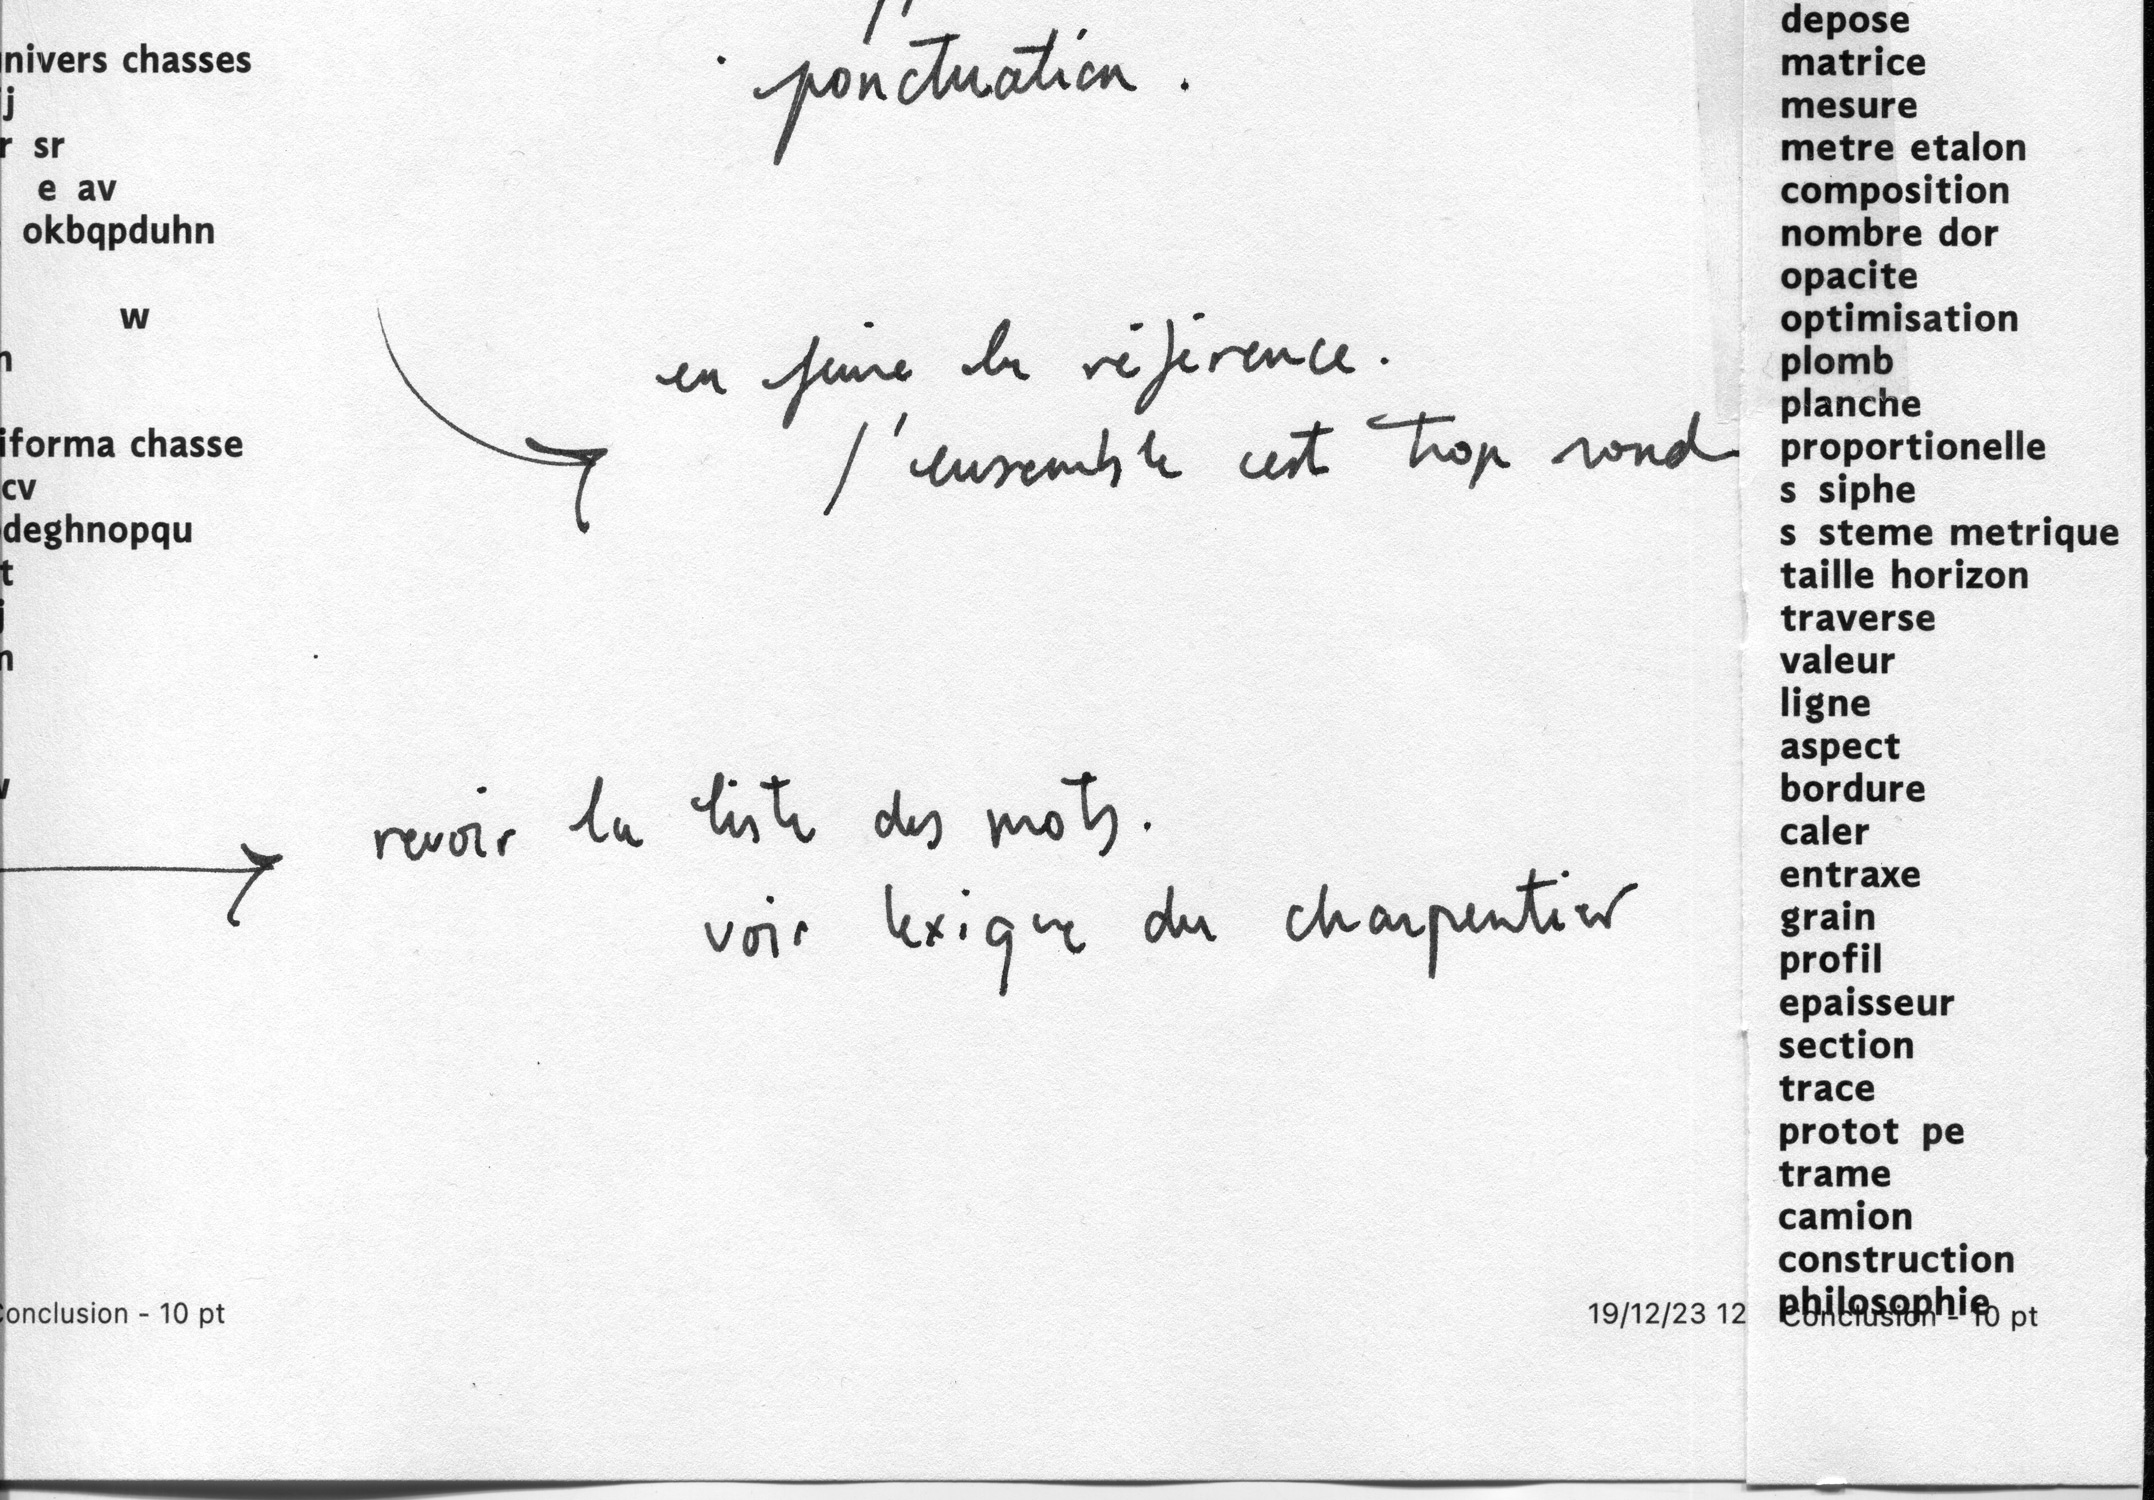 nivers chasses
j
r sr
e av
okbqpduhn
w
iforma chasse
cv
deghnopqu
t
j
ponctuation.
en faire la référence.
l'ensemble est trop rond
revoir la liste des mots.
voir lexique du charpentier
onclusion - 10 pt
19/12/23 12
depose
matrice
mesure
metre etalon
composition
nombre dor
opacite
optimisation
plomb
planche
proportionelle
s siphe
s steme metrique
taille horizon
traverse
valeur
ligne
aspect
bordure
caler
entraxe
grain
profil
epaisseur
section
trace
protot pe
trame
camion
construction
philosophie
Conclusion - 10 pt